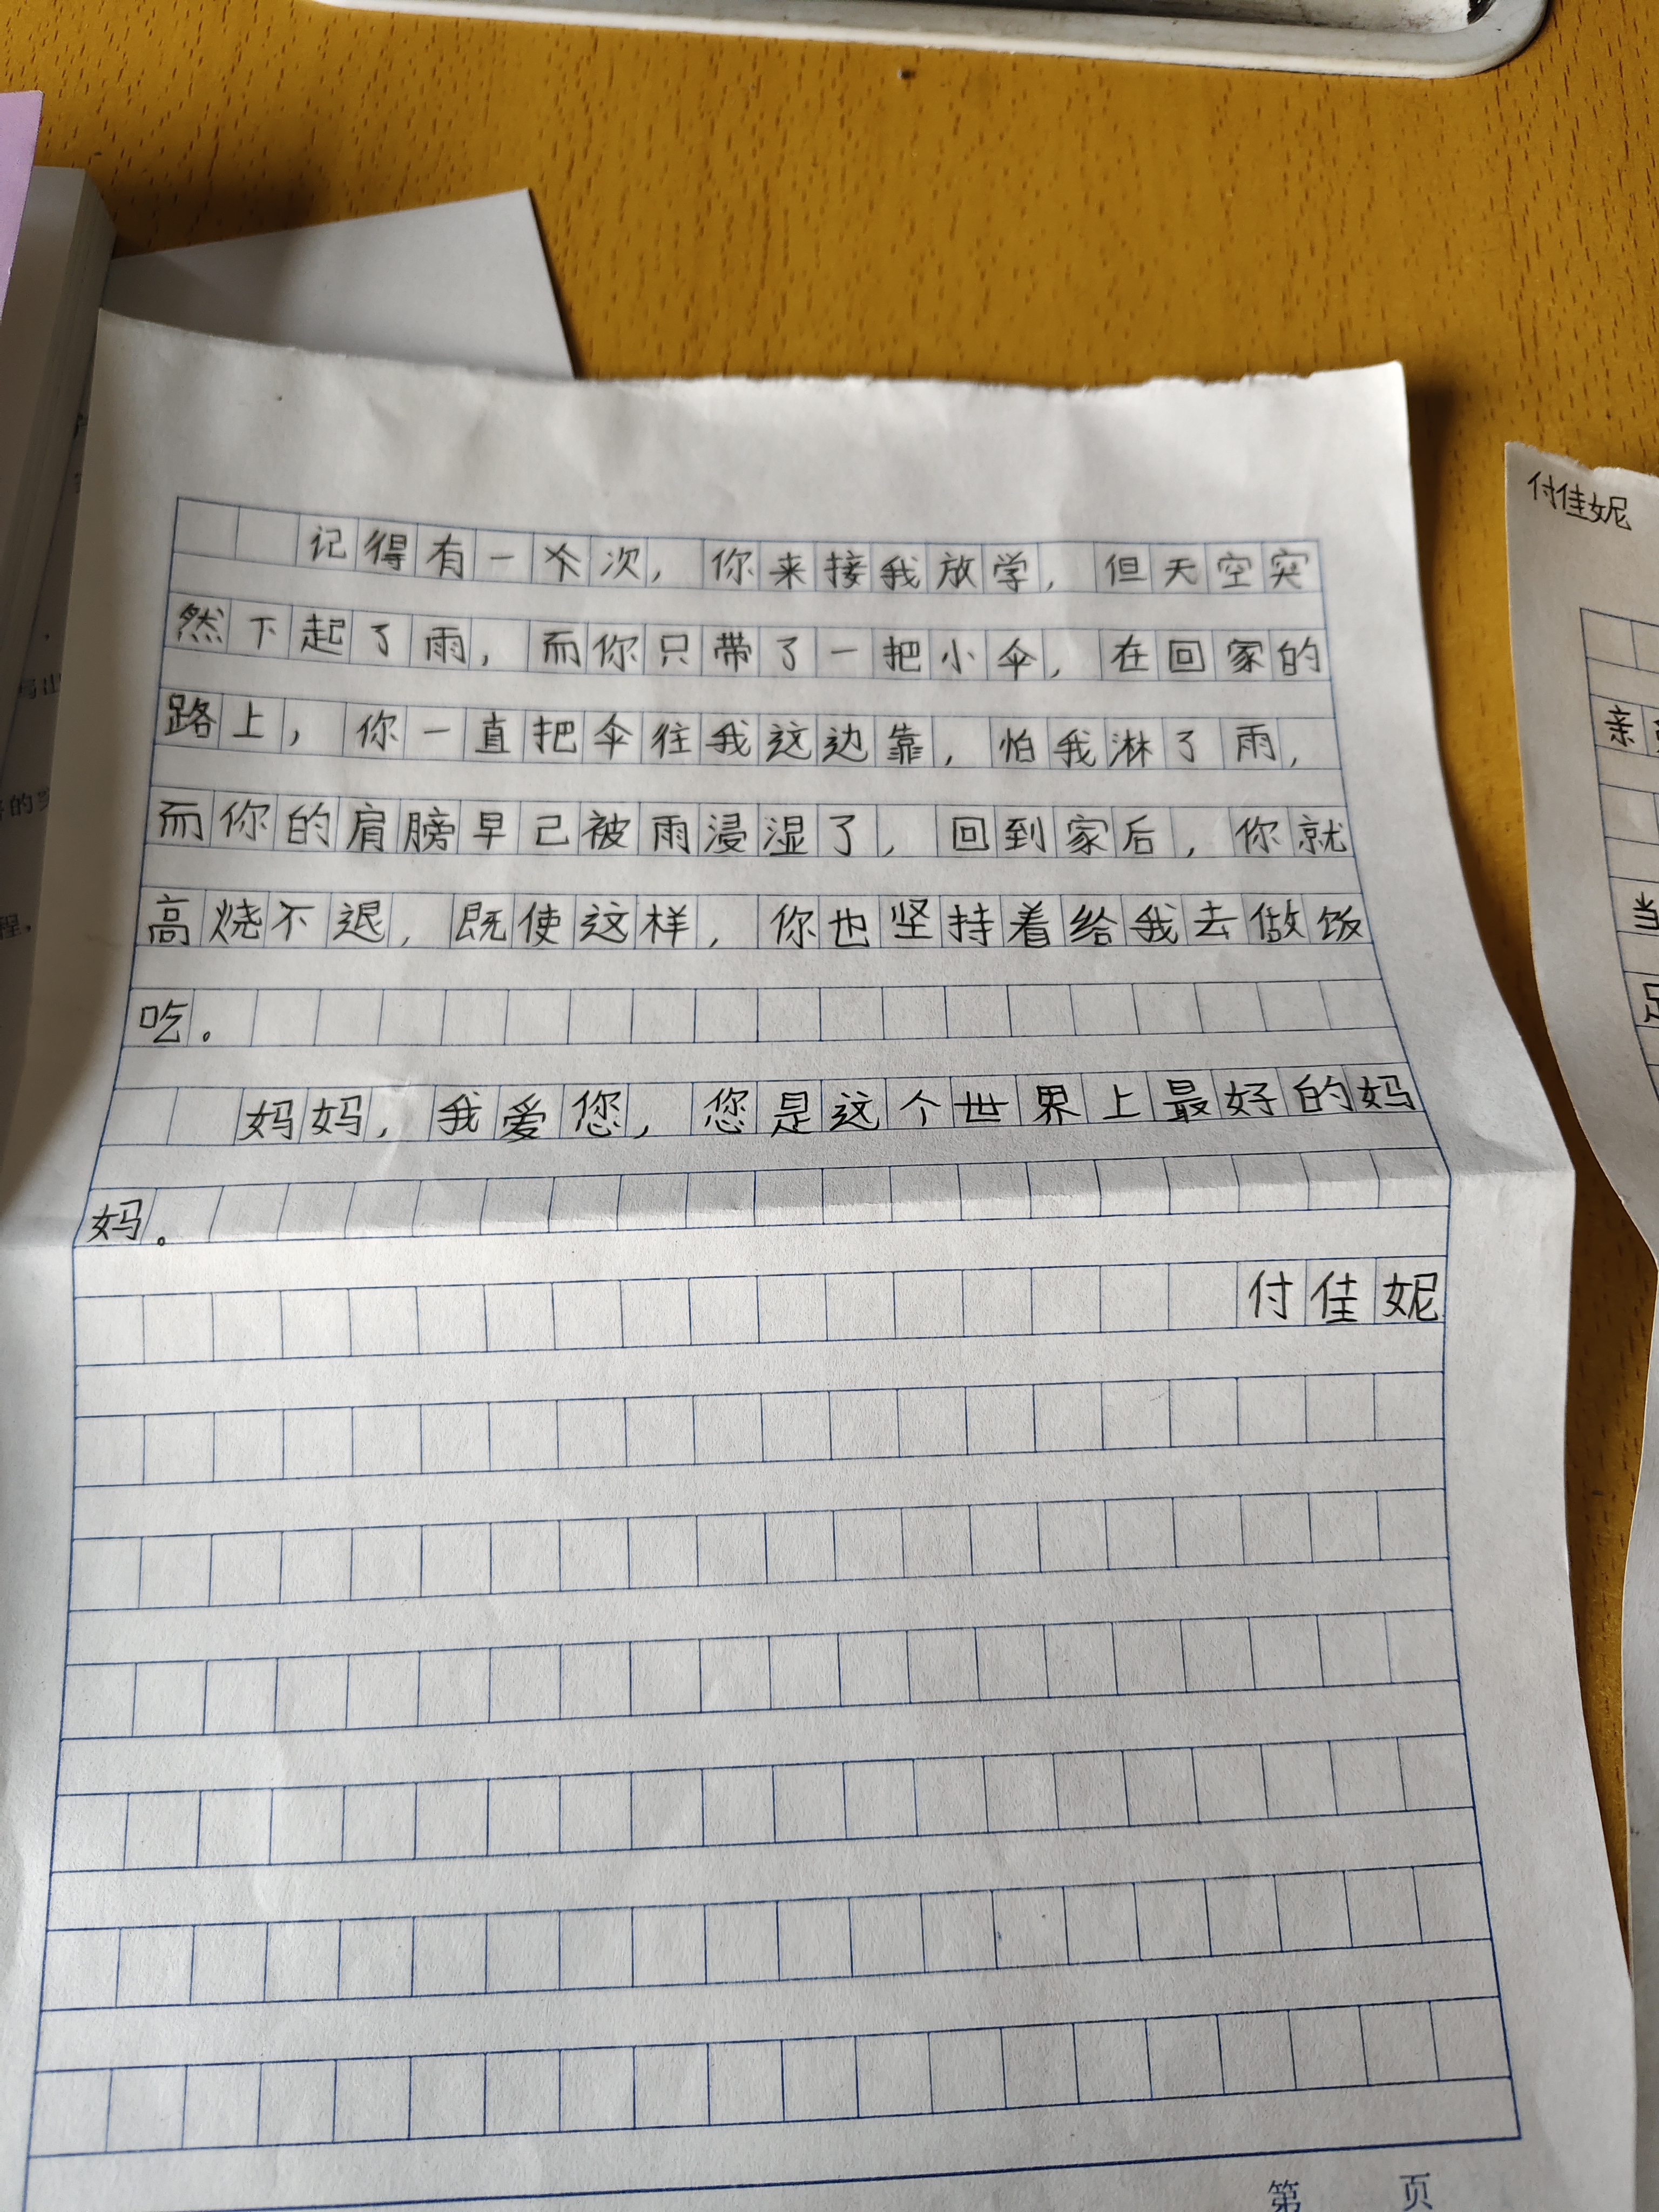 记得有一次，你来接我放学，但天空突
然下起了雨，而你只带了一把小伞，在回家的
路上，你一直把伞往我这边靠，怕我淋了雨，
而你的肩膀早己被雨浸湿了，回到家后，你就
高烧不退，既使这样，你也坚持着给我去做饭
吃。
妈妈，我爱您，您是这个世界上最好的妈
妈。
付佳妮
第 页
付佳妮
亲
当
足